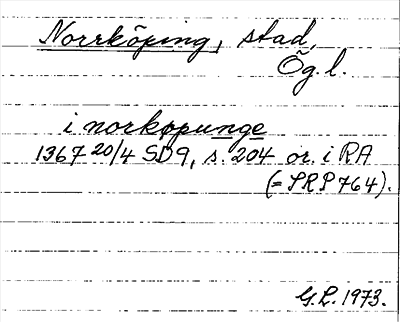 Norrköping, stad,
Ög. l.
i norkøpunge
1367 20/4 SD 9, s. 204 or. i RA
(= SRP 764).
G.L. 1973.